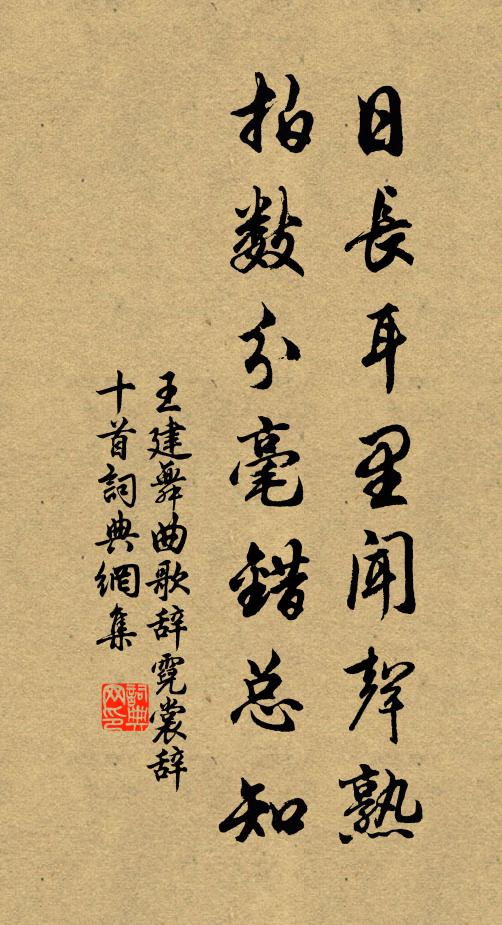 日長耳里聞聲熟
拍數分毫錯总知
王建舞曲歌辞霓裳辞
十首詞典網集
詞典
网印